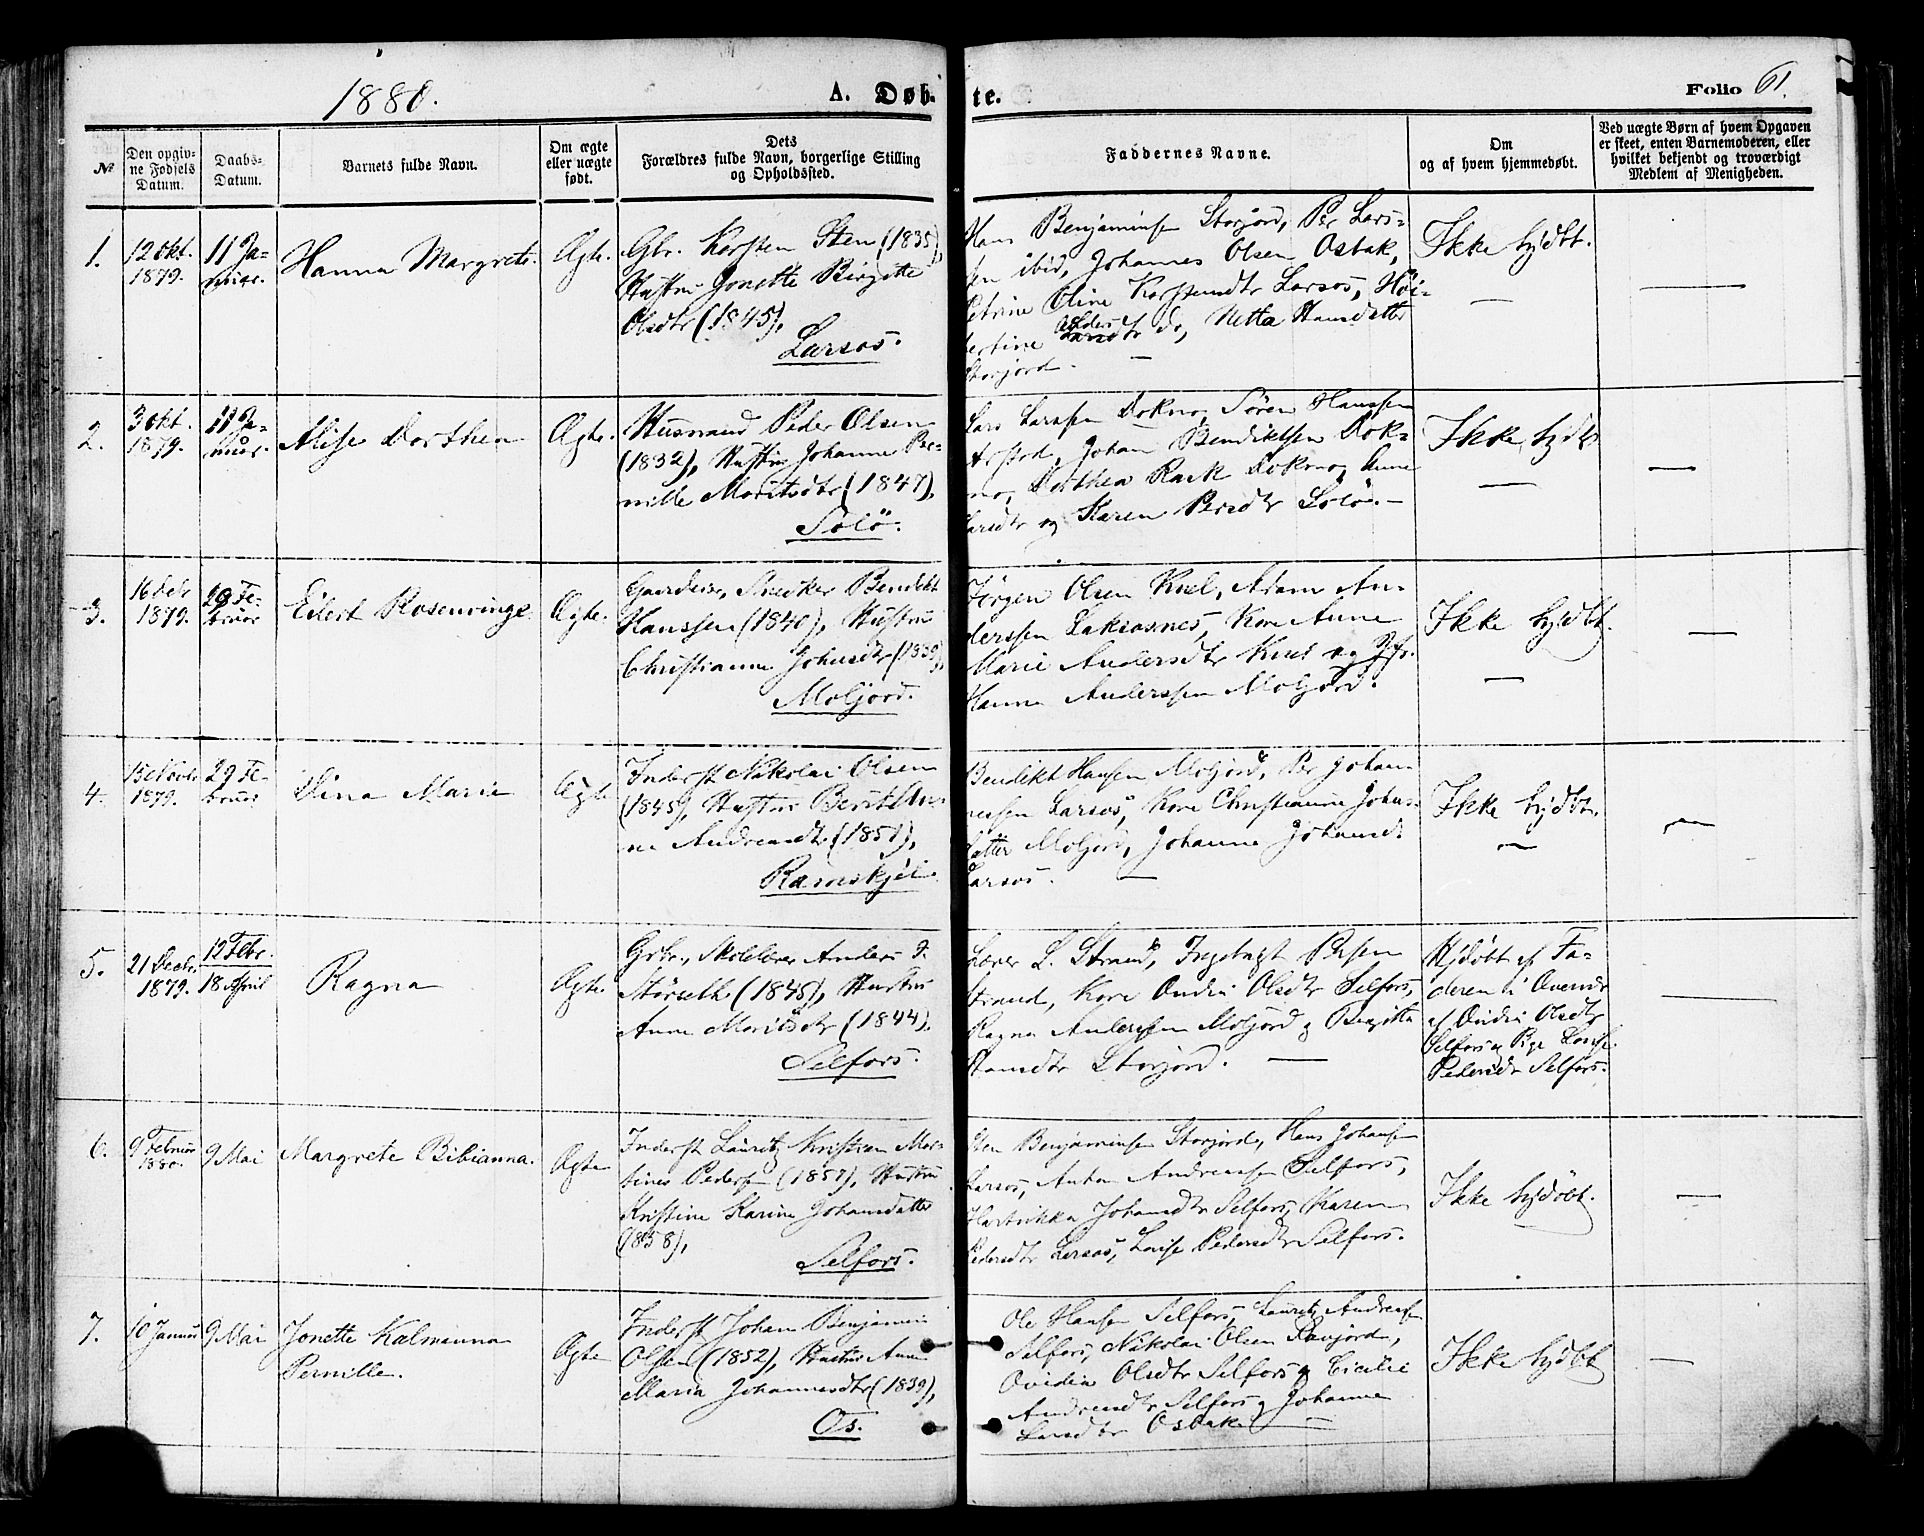 1880.
A. Døbte.
Folio 61.
№
Den opgivne Fødsels Datum.
Daabs-Datum.
Barnets fulde Navn.
Om ægte eller uægte født.
Dets Forældres fulde Navn, borgerlige Stilling og Opholdssted.
Faddernes Navne.
Om og af hvem hjemmedøbt.
Ved uægte Børn af hvem Opgaven er skeet, enten Barnemoderen, eller hvilket bekjendt og troværdigt Medlem af Menigheden.
1.
12 Okt.
1879.
11 Ja-
nuar.
Hanna Margrete.
Ægte.
Gbr. Karsten Sten (1835),
Hustru Jonette Birgitte
Olsdtr (1845),
Larsos.
Hans Benjaminsen Storjord, Per Lars-
sen ibid, Johannes Olsen Osbak,
Petrine Oline Larsos,
do, Netta Hansdatter
Storjord.
Ikke hjdbt.
—
2.
3 Okt.
1879.
11 Ja-
nuar.
Alise Dorthea
Ægte.
Husmand Peder Olsen
(1832), Hustru Johanne Per-
nille Moritsdtr (1847),
Solö.
Lars Larssen Dokmo, Sören Hanssen
Johan Bendiktsen Dok-
mo, Dorthea Dokmo, Anne
Larsdtr og Karen Persdtr Solö.
Ikke hjdbt
—
3.
16
1879.
29 Fe-
bruar
Eilert Rosenvinge
Ægte.
Gaardeier, Snedker Bendikt
Hanssen (1840), Hustru
Christianne Johnsdtr (1839),
Moljord.
Jörgen Olsen Kvel, Adam An-
derssen Laksosnes, Kone Anne
Marie Andersdtr Kvel og
Hanna Anderssen Moljord.
Ikke hjdbt.
—
4.
15 Novbr
1879.
29 Fe-
bruar
Dina Marie
Ægte
Inderst Nikolai Olsen
(1845), Hustru Berit An-
na Andreasdtr (1851),
Ramskjel.
Bendikt Hansen Moljord, Per Johan-
nessen Larsos, Kone Christianne Johns-
datter Moljord, Johanna Johansd.
Larsos.
Ikke hjdbt.
—
5.
21 Decbr.
1879.
12 Febr.
18 April
Ragna
Ægte.
Gbr., Skolelærer Anders J.
Störseth (1845), Hustru
Anne Moritsdtr (1844).
Selfors.
Lærer L. Strand, Ingebrigt Persen
Strand, Kone Ovidia Olsdtr Selfors,
Ragna Anderssen Moljord og Bergitta
Hansdtr Storjord.
Hjdöbt af Fa-
deren i Overvær
af Ovidia Olsdtr
Selfors og Pige Louise
Pedersdtr Selfors.
—
6.
9 Februar
1880.
9 Mai
Margrete Bibianna.
Ægte
Inderst Lauritz Kristian Mar-
tines Pedersen (1857), Hustru
Kristine Karine Johansdatter
(1858),
Selfors.
Sten Benjaminsen Storjord, Hans Johansen
Larsos, Anton Andreassen Selfors,
Hartvikka Johansdtr Selfors, Karen
Pedersdtr Larsos, Louise Pedersdtr Selfors.
Ikke hjdöbt.
—
7.
10 Januar
9 Mai
Jonette Kalmanna
Pernille.
Ægte
Inderst Johan Benjamin
Olsen (1852), Hustru Anne
Maria Johannesdtr (1839),
Os.
Ole Hansen Selfors, Lauritz Andreassen
Selfors, Nikolai Olsen
Ovidia Olsdtr Selfors og Cicilie
Andreasdtr Selfors og Johanne
Larsdtr Osbak.
Ikke hjdbt
—